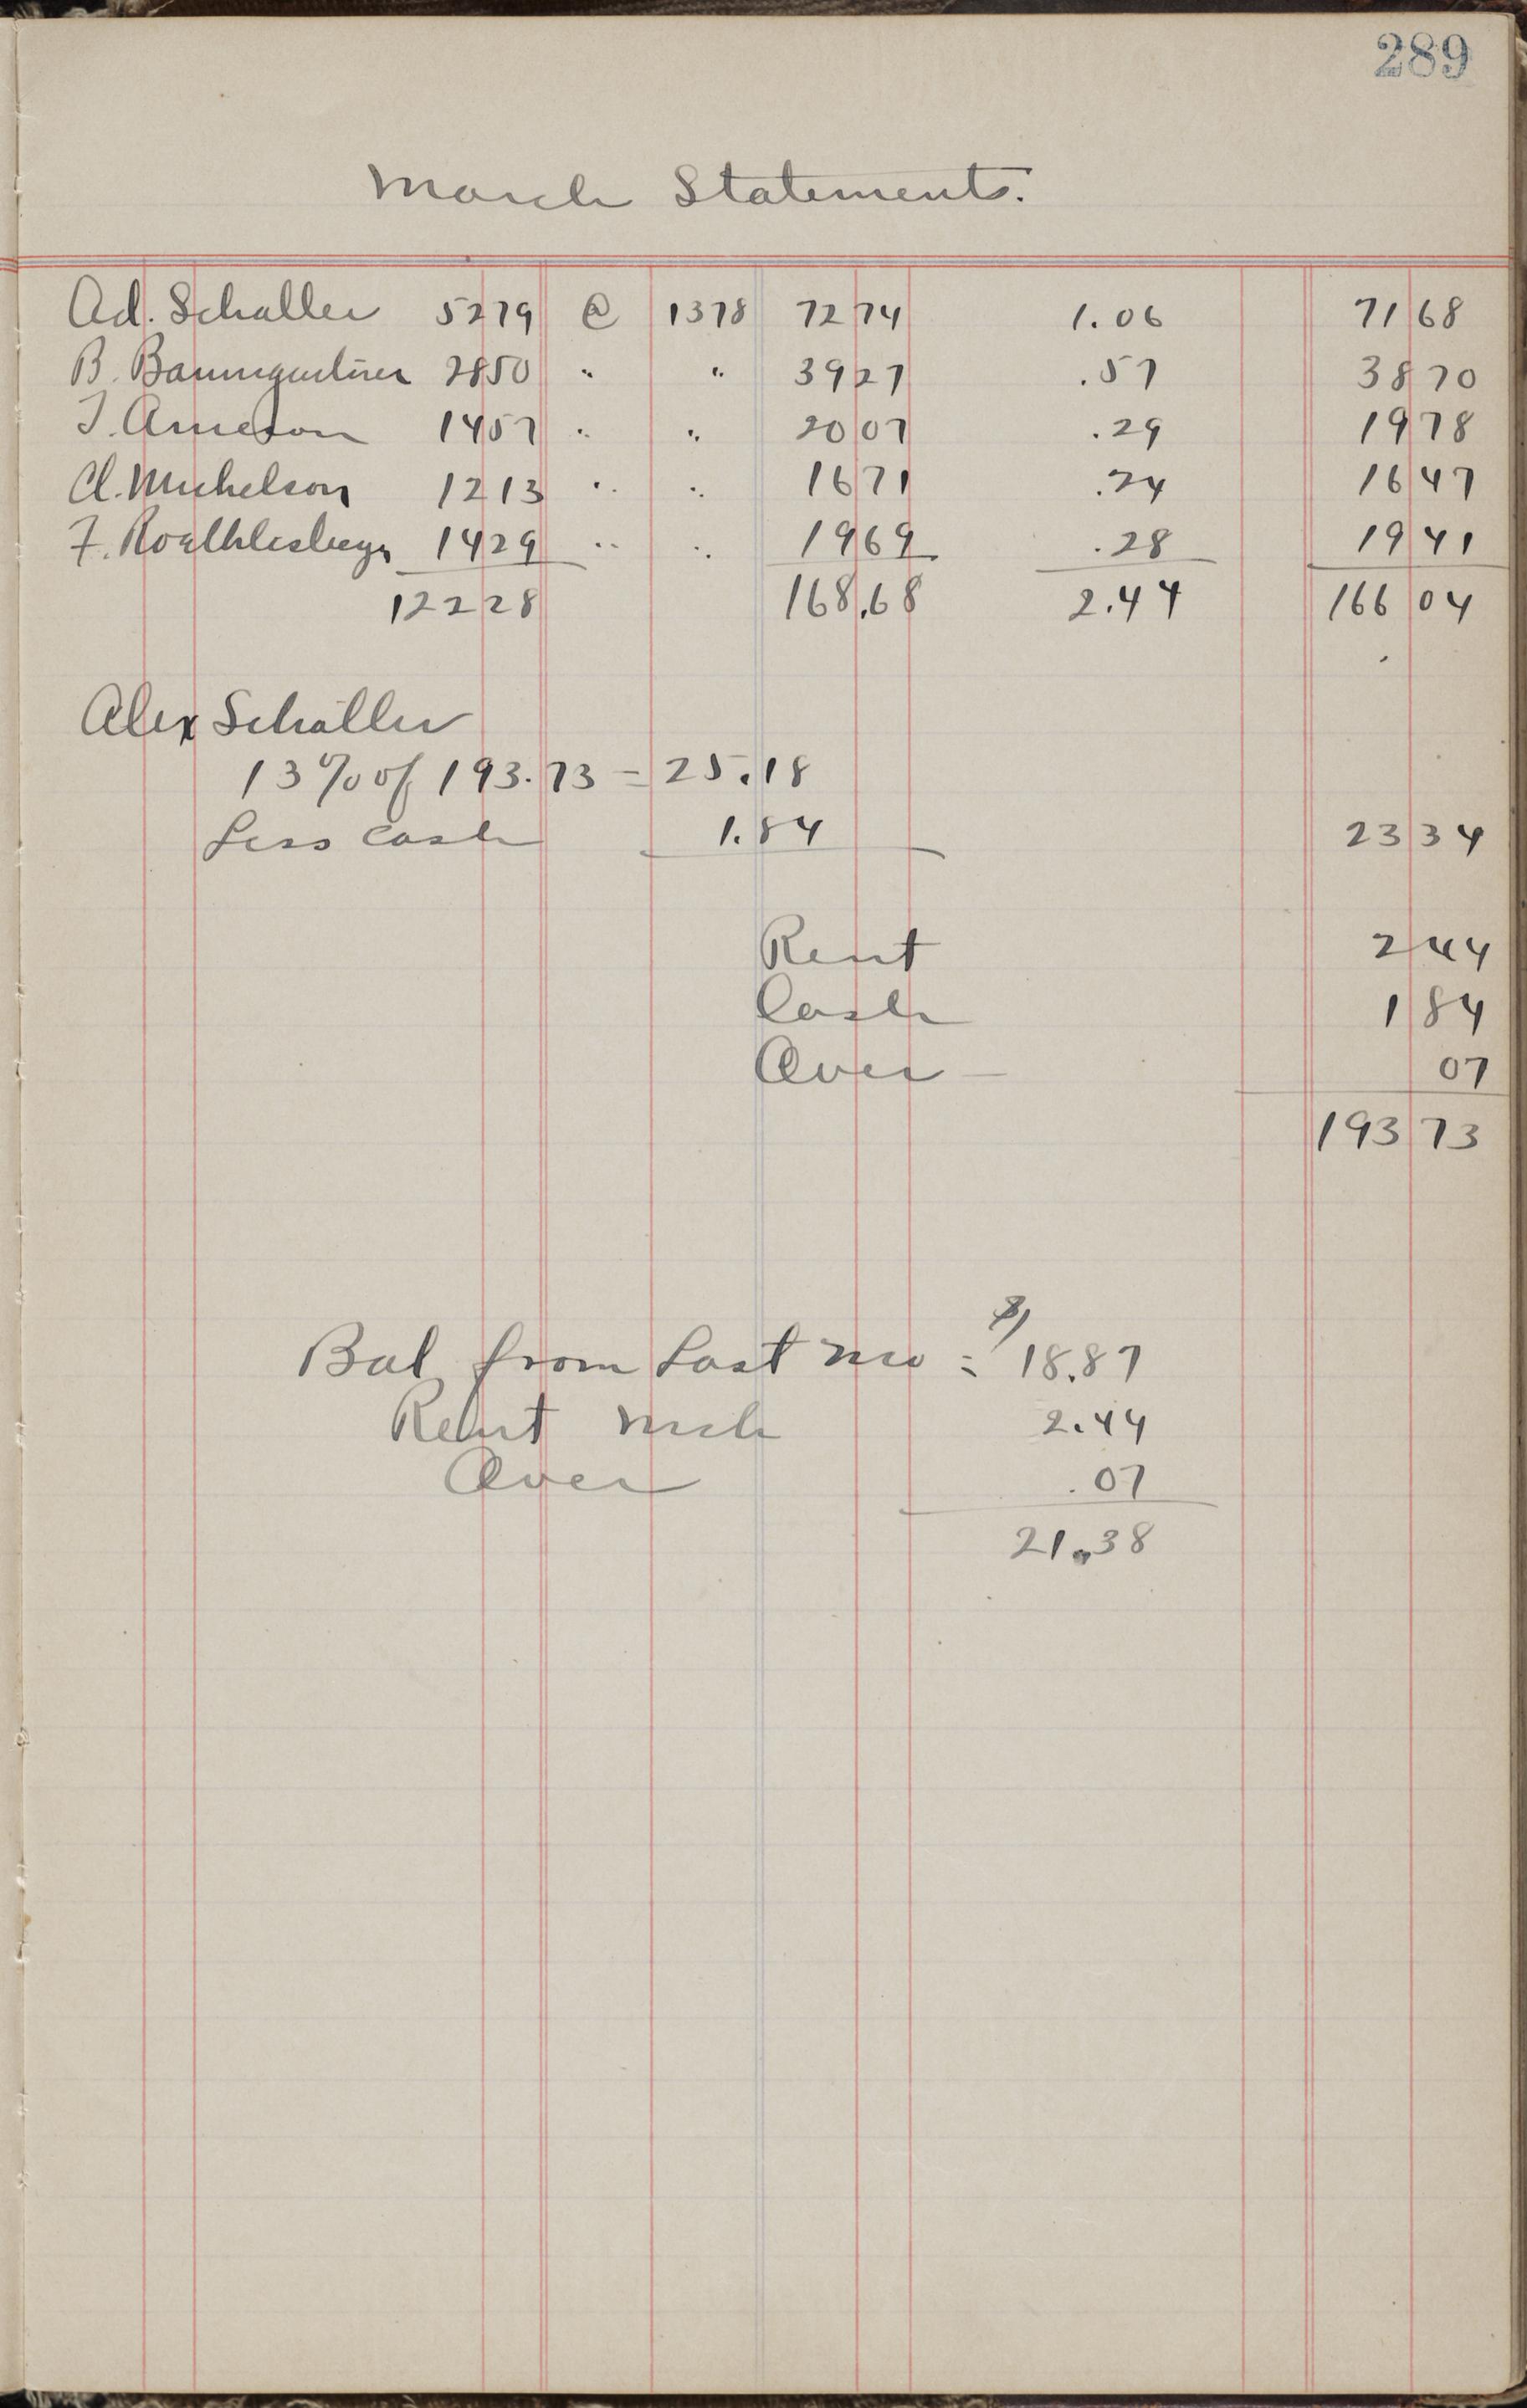 289
March Statements.
Ad. Schaller 5279 @ 1378 72 74 1.06 71 68
B. Baumgartner 2850 " " 39 27 .57 38 70
J. Arneson 1457 " " 20 07 .29 19 78
Cl. Michelson 1213 " " 16 71 .24 16 47
F. Roethlisberger 1429 " " 19 69 .28 19 41
12228 168.68 2.44 166 04
Alex Schaller
13% of 193.73 = 25.18
Less Cash 1.84 23 34
Rent 2 44
Cash 1 84
Over — 07
193 73
Bal from Last mo = 18.87
Rent Mch 2.44
Over .07
21.38